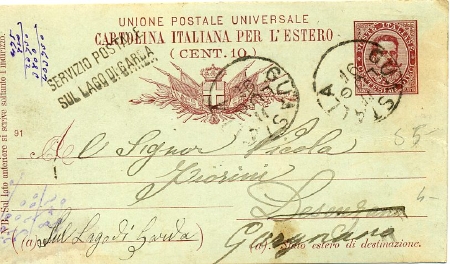 UNIONE POSTALE UNIVERSALE
CARTOLINA ITALIANA PER L'ESTERO
(CENT. 10.)
SERVIZIO POSTALE
SUL LAGO DI GARDA
GUASTALLA
GUASTALLA
91
Al Signor Nicola
Fiorini
Desenzano
Gargnano
(a) Sul Lago di Garda
(a). Stato estero di destinazione.
NB. Sul lato anteriore si scrive soltanto l'indirizzo.